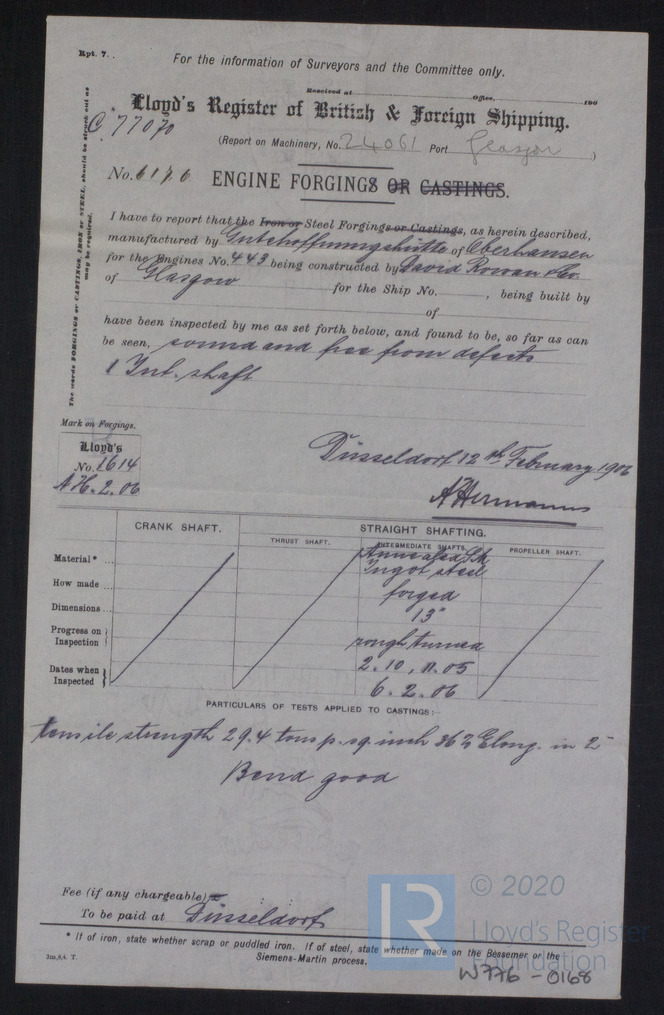 Rpt. 7.
For the information of Surveyors and the Committee only.
Received at Office, 190
C 77070
Lloyd's Register of British & Foreign Shipping.
(Report on Machinery, No. 24061 Port Glasgow)
No. 6176 ENGINE FORGINGS OR CASTINGS.
The words FORGINGS or CASTINGS, IRON or STEEL, should be struck out as may be required.
I have to report that the Iron or Steel Forgings or Castings, as herein described,
manufactured by Gutehoffnungshütte of Oberhausen
for the Engines No. 443 being constructed by David Rowan & Co.
of Glasgow for the Ship No. , being built by
of
have been inspected by me as set forth below, and found to be, so far as can
be seen, sound and free from defects
1 Int. shaft
Mark on Forgings.
Lloyd's
No. 1614
AH. 2. 06
Düsseldorf 12th February 1906
A Hermanns
CRANK SHAFT. STRAIGHT SHAFTING.
THRUST SHAFT. INTERMEDIATE SHAFTS. PROPELLER SHAFT.
Material* Annealed S.M.
Ingot steel
How made forged
Dimensions 13"
Progress on Inspection rough turned
Dates when Inspected 2. 10, 11. 05
6. 2. 06
PARTICULARS OF TESTS APPLIED TO CASTINGS:—
tensile strength 29.4 tons p. sq. inch 36% Elong. in 2"
Bend good
Fee (if any chargeable)
To be paid at Düsseldorf
* If of iron, state whether scrap or puddled iron. If of steel, state whether made on the Bessemer or the
Siemens-Martin process.
2m,8,4. T.
LR
© 2020
Lloyd's Register
Foundation
W776-0168